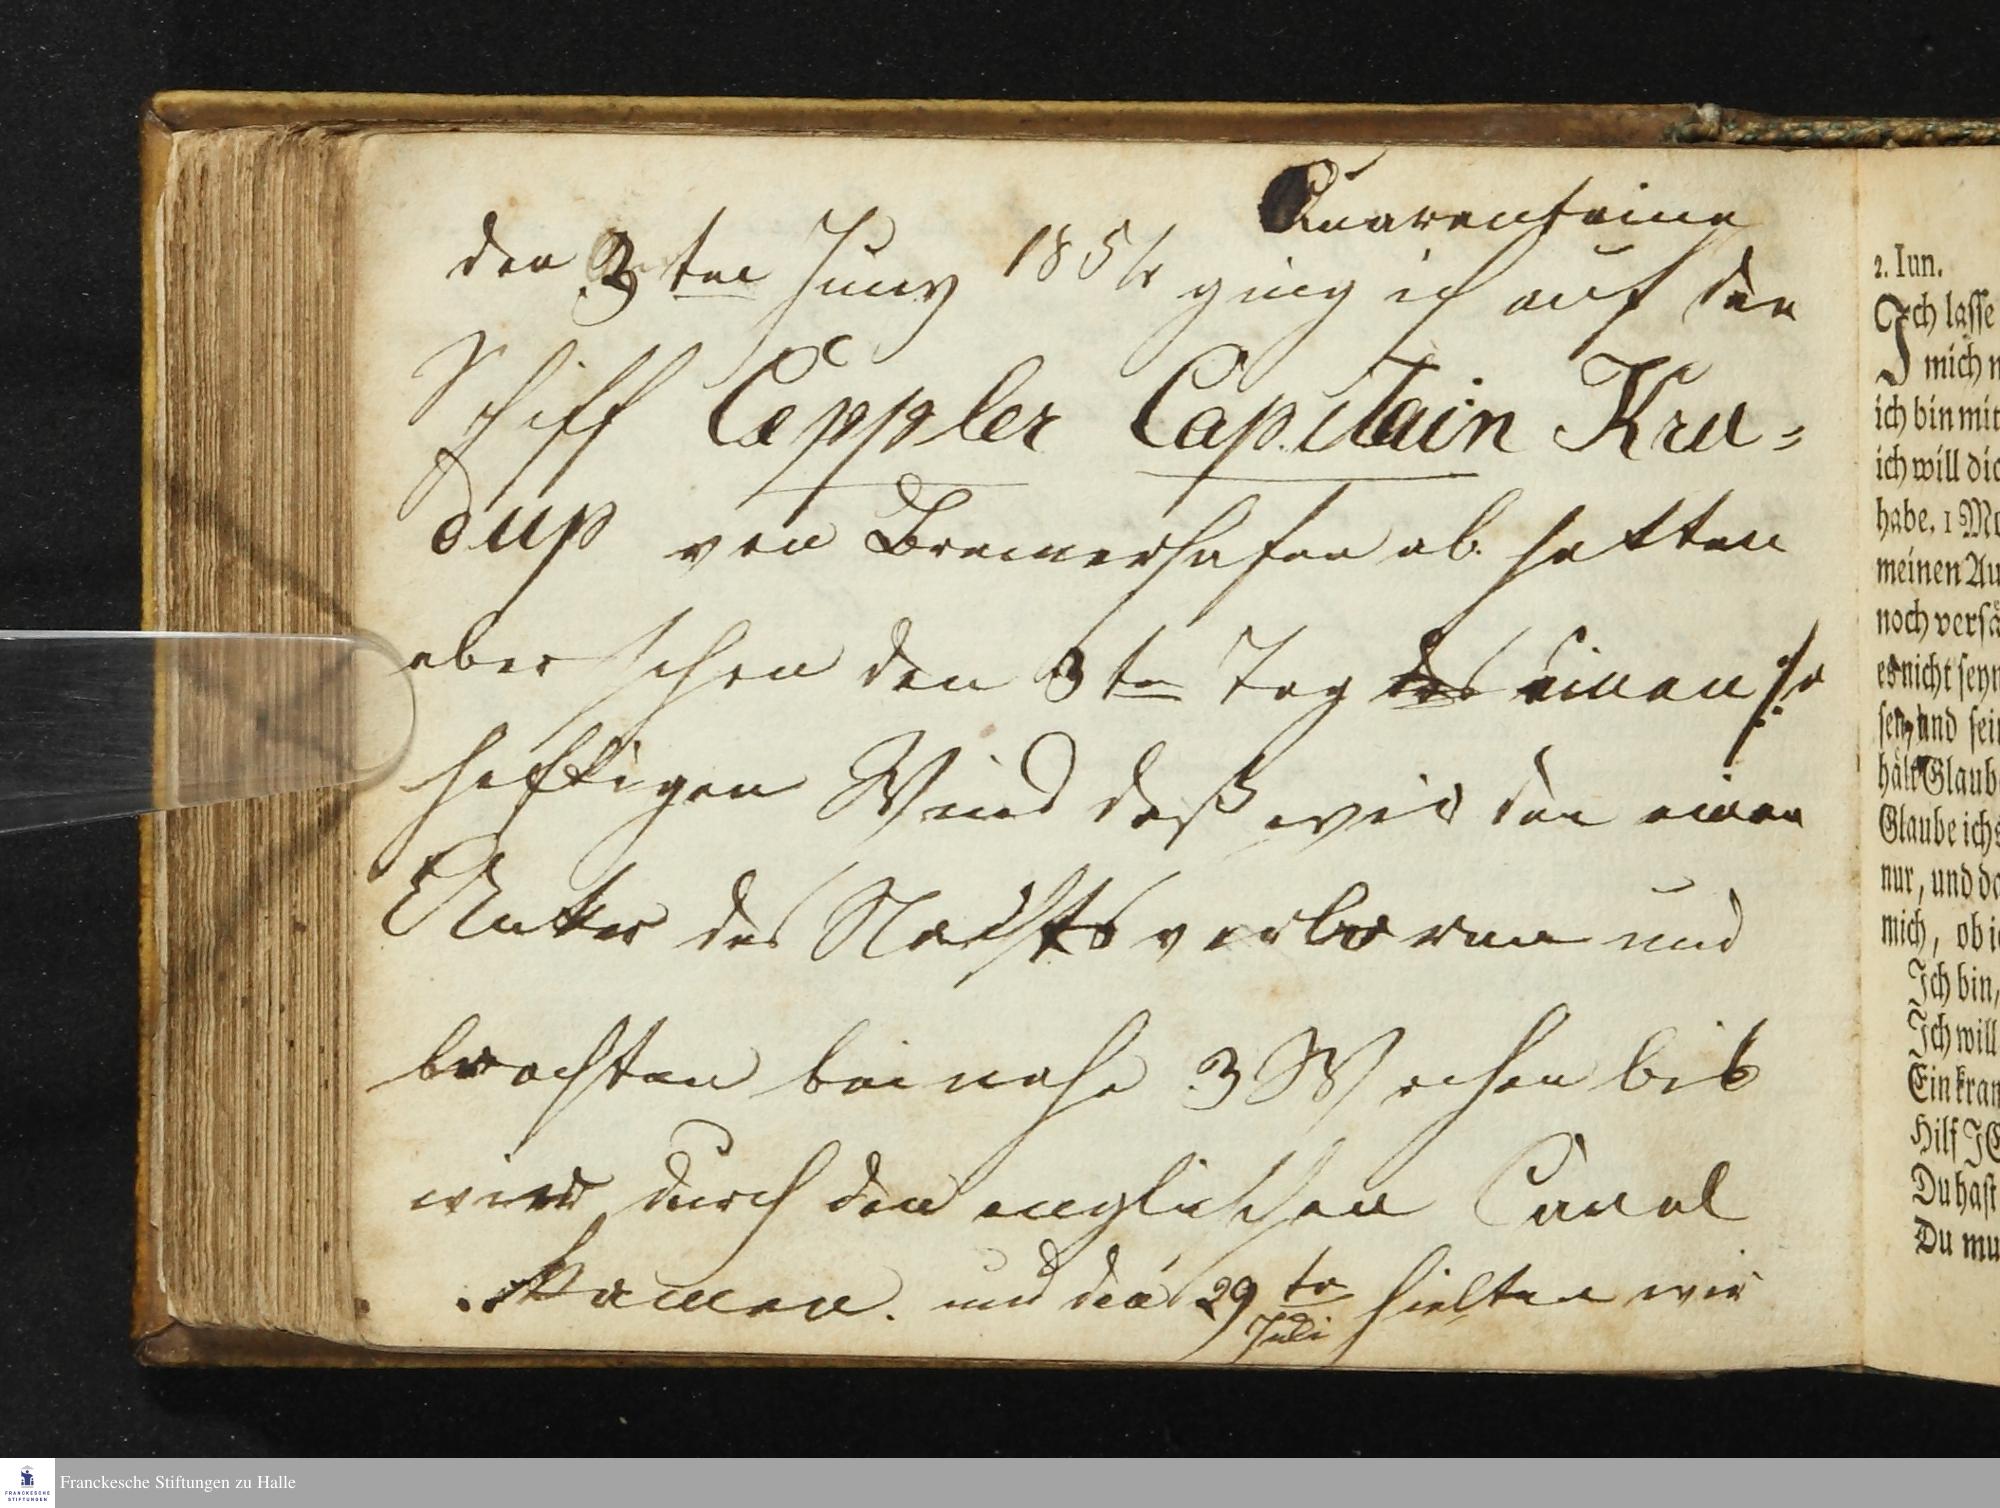 Quarenteine
den 3ten Juny 1854 ging ich auf den
Schiff Cæppler Capitain Kru=
dup von Bremerhafen ab. hatten
aber schon den 3ten Tag des einen so
heftigen Wind daß wir den einen
Anker des Nachts verloren und
brachten bei nahe 3 Wochen bis
wir durch den englischen Canal
kamen. und den 29te hielten wir
Juli
2. Iun.
Ich lasse
mich n
ich bin mit
ich will dic
habe. 1 Mo
meinen Au
noch versä
es nicht seyn
sen, und sein
hält Glaub
Glaube ichs
nur, und da
mich, ob i
Ich bin,
Ich will
Ein kran
Hilf JE
Du hast
Du mu
FRANCKESCHE
STIFTUNGEN
Franckesche Stiftungen zu Halle